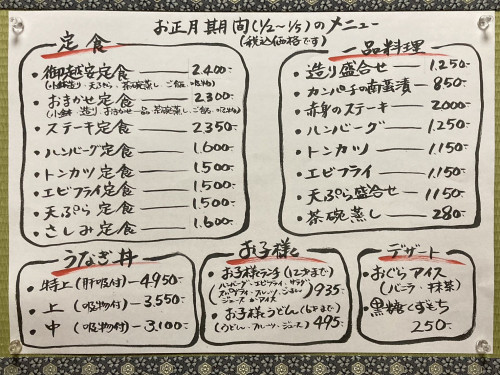 お正月期間(1/2〜1/5)のメニュー
(税込価格です)
定食
・御越安定食 2.400-
(小鉢・造り・天ぷら・茶碗蒸し・ご飯・吸物)
・おまかせ定食 2.300-
(小鉢・造り・おまかせ一品・茶碗蒸し・ご飯・吸物)
・ステーキ定食 2.350-
・ハンバーグ定食 1.600-
・トンカツ定食 1.500-
・エビフライ定食 1.500-
・天ぷら定食 1.500-
・さしみ定食 1.600-
一品料理
・造り盛合せ 1.250-
・カンパチの南蛮漬 850-
・赤身のステーキ 2000-
・ハンバーグ 1.250-
・トンカツ 1.150-
・エビフライ 1.150-
・天ぷら盛合せ 1150-
・茶碗蒸し 280-
うなぎ丼
・特上(肝吸付) 4.950-
・上(吸物付) 3.550-
・中(吸物付) 3.100-
お子様
・お子様ランチ(12才まで)
(ハンバーグ・エビフライ・サラダ
フルーツ
ジュース・アイス) 935-
・お子様うどん(6才まで)
(うどん・フルーツ・ジュース) 495-
デザート
・おぐらアイス
(バニラ・抹茶)
・黒糖くずもち
250-